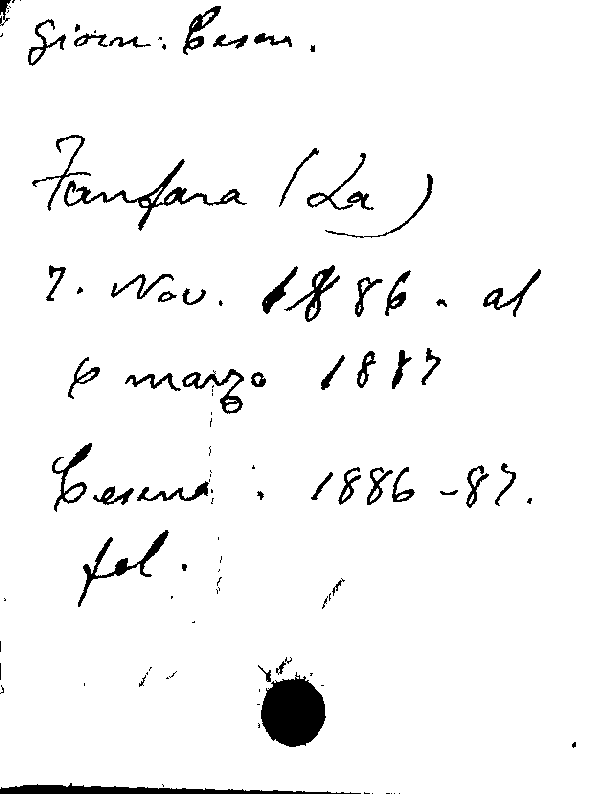 Giorn. Cesen.
Fanfara (La)
7. Nov. 1886. al
6 marzo 1887
Cesena. 1886-87.
fol.